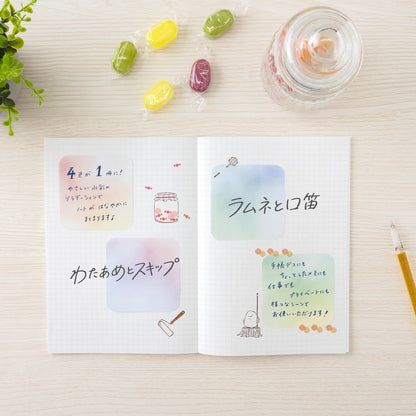 4色が1冊に!
やさしい水彩の
グラデーションで
ノートがはなやかに
まとまりますよ
わたあめとスキップ
ラムネと口笛
手帳デコにも
ちょっとしたメモにも
仕事でも
プライベートにも
様々なシーンで
お使いいただけます!